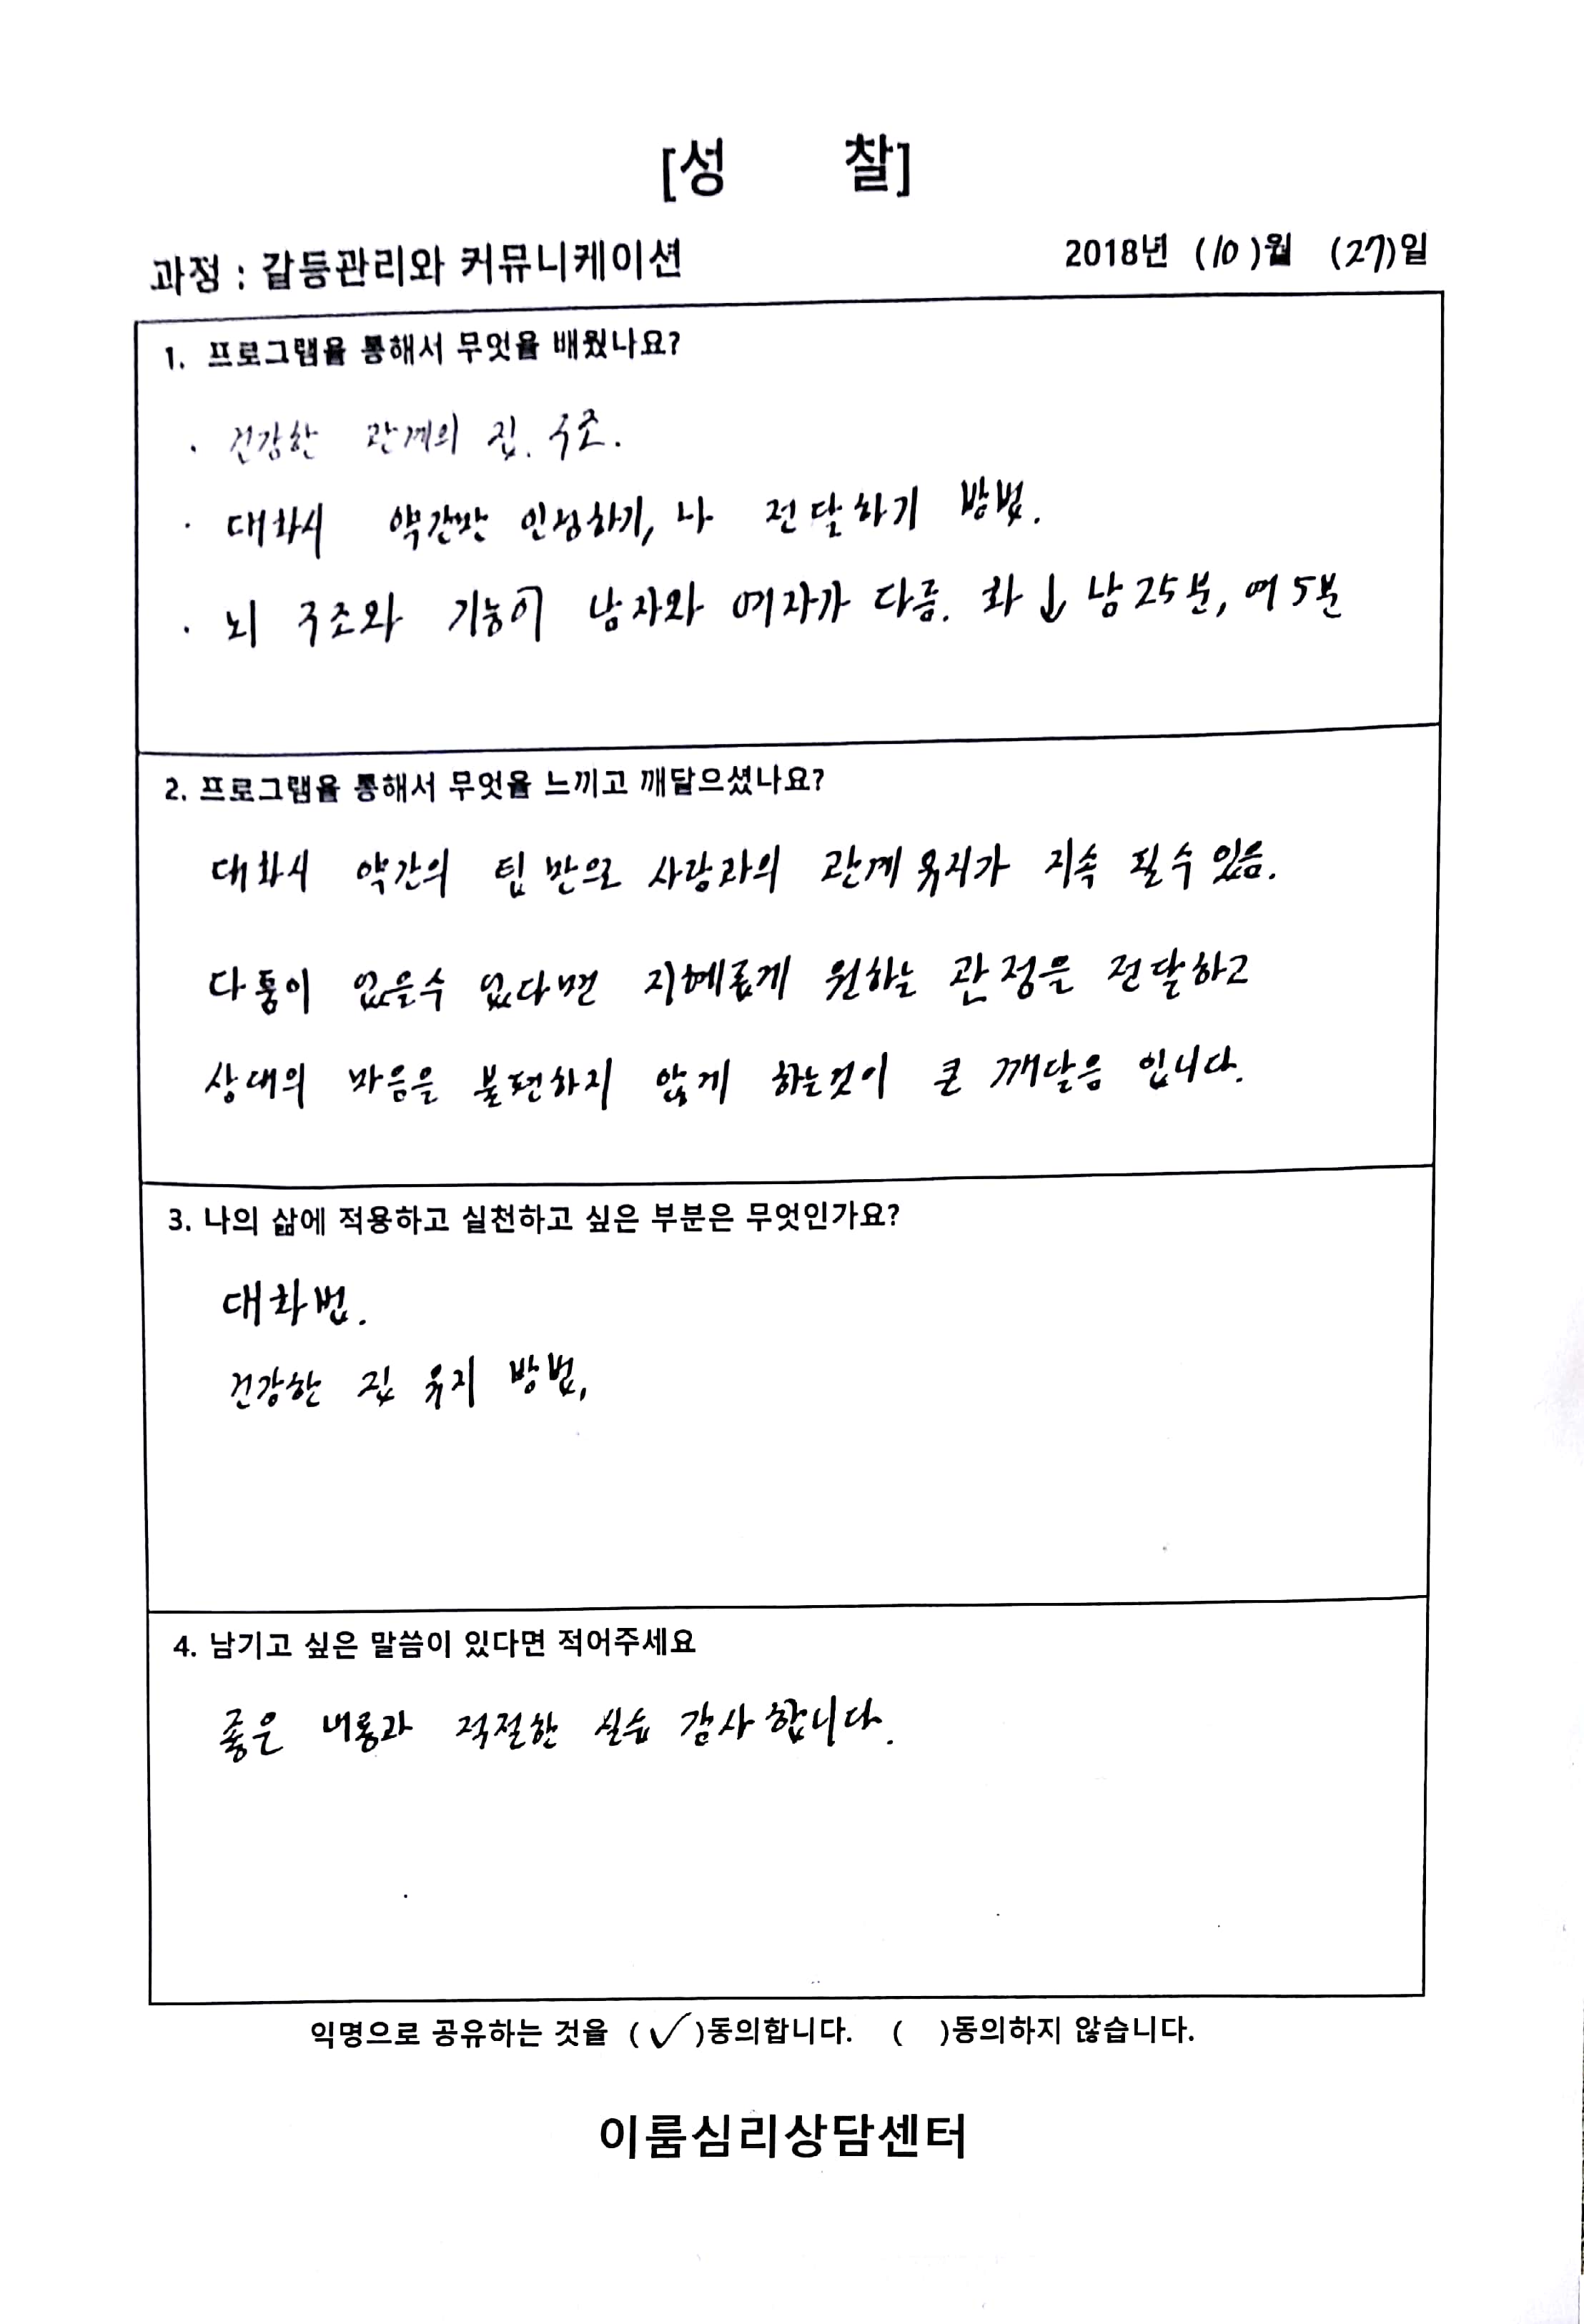 [성 찰]
과정 : 갈등관리와 커뮤니케이션
2018년 (10)월 (27)일
1. 프로그램을 통해서 무엇을 배웠나요?
· 건강한 관계의 집. 구조.
· 대화시 약간만 인정하기, 나 전달하기 방법.
· 뇌 구조와 기능이 남자와 여자가 다름. 화 ↓ 남 25분, 여 5분
2. 프로그램을 통해서 무엇을 느끼고 깨달으셨나요?
대화시 약간의 팁 만으로 사람과의 관계 유지가 지속 될 수 있음.
다툼이 없을수 없다면 지혜롭게 원하는 관점을 전달하고
상대의 마음을 불편하지 않게 하는것이 큰 깨달음 입니다.
3. 나의 삶에 적용하고 실천하고 싶은 부분은 무엇인가요?
대화법.
건강한 집 유지 방법,
4. 남기고 싶은 말씀이 있다면 적어주세요
좋은 내용과 적절한 실습 감사합니다.
익명으로 공유하는 것을 (✓)동의합니다. ( )동의하지 않습니다.
이룸심리상담센터